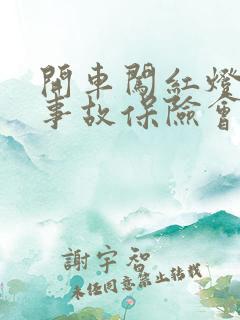 開車闖紅燈
事故保險會
謝宇智
未經同意禁止轉載